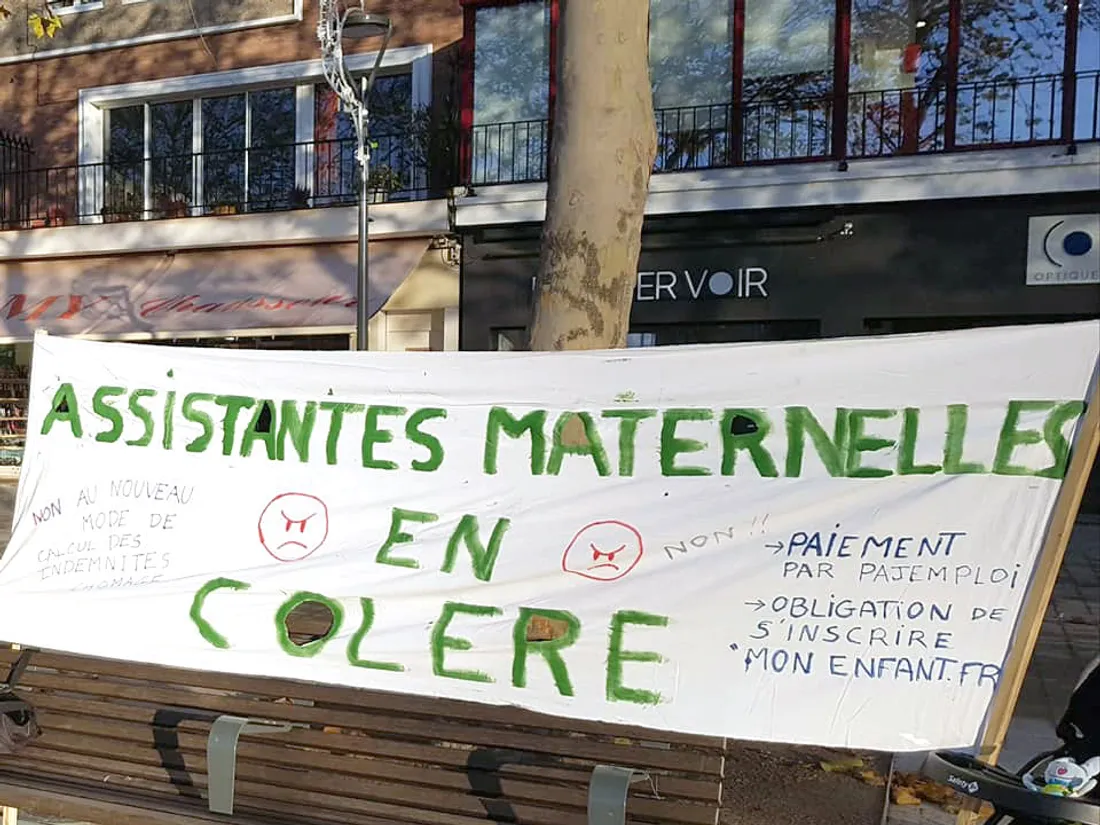 MY Chaussures
ER VOIR
OPTIQUE
ASSISTANTES MATERNELLES
EN
COLERE
NON AU NOUVEAU
MODE DE
CALCUL DES
INDEMNITES
CHOMAGE
NON !!
→PAIEMENT
PAR PAJEMPLOI
→OBLIGATION DE
S'INSCRIRE
"MON ENFANT.FR
Safety